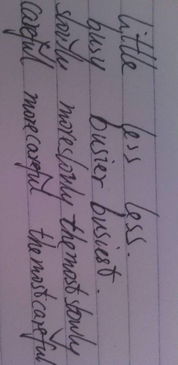 little less less.
busy busier busiest.
slowly more slowly the most slowly
careful more careful the most careful